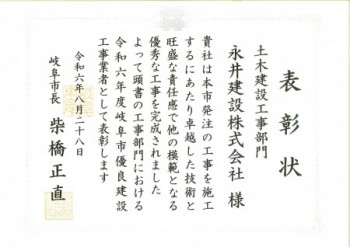 表彰状
土木建設工事部門
永井建設株式会社 様
貴社は本市発注の工事を施工
するにあたり卓越した技術と
旺盛な責任感で他の模範となる
優秀な工事を完成されました
よって頭書の工事部門における
令和六年度岐阜市優良建設
工事業者として表彰します
令和六年八月二十八日
岐阜市長 柴橋正直